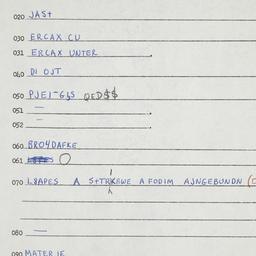 020 JASt
030 ERCAX CU
031 ERCAX UNTER
040 DI OJT
050 PJEI-GJS QED$$
051 —
052 —
060 BRO4DAFKE
061
070 L8APES A S+TRKEWE A FODIM AJNGEBUNDN (
080 —
090 MATER IE